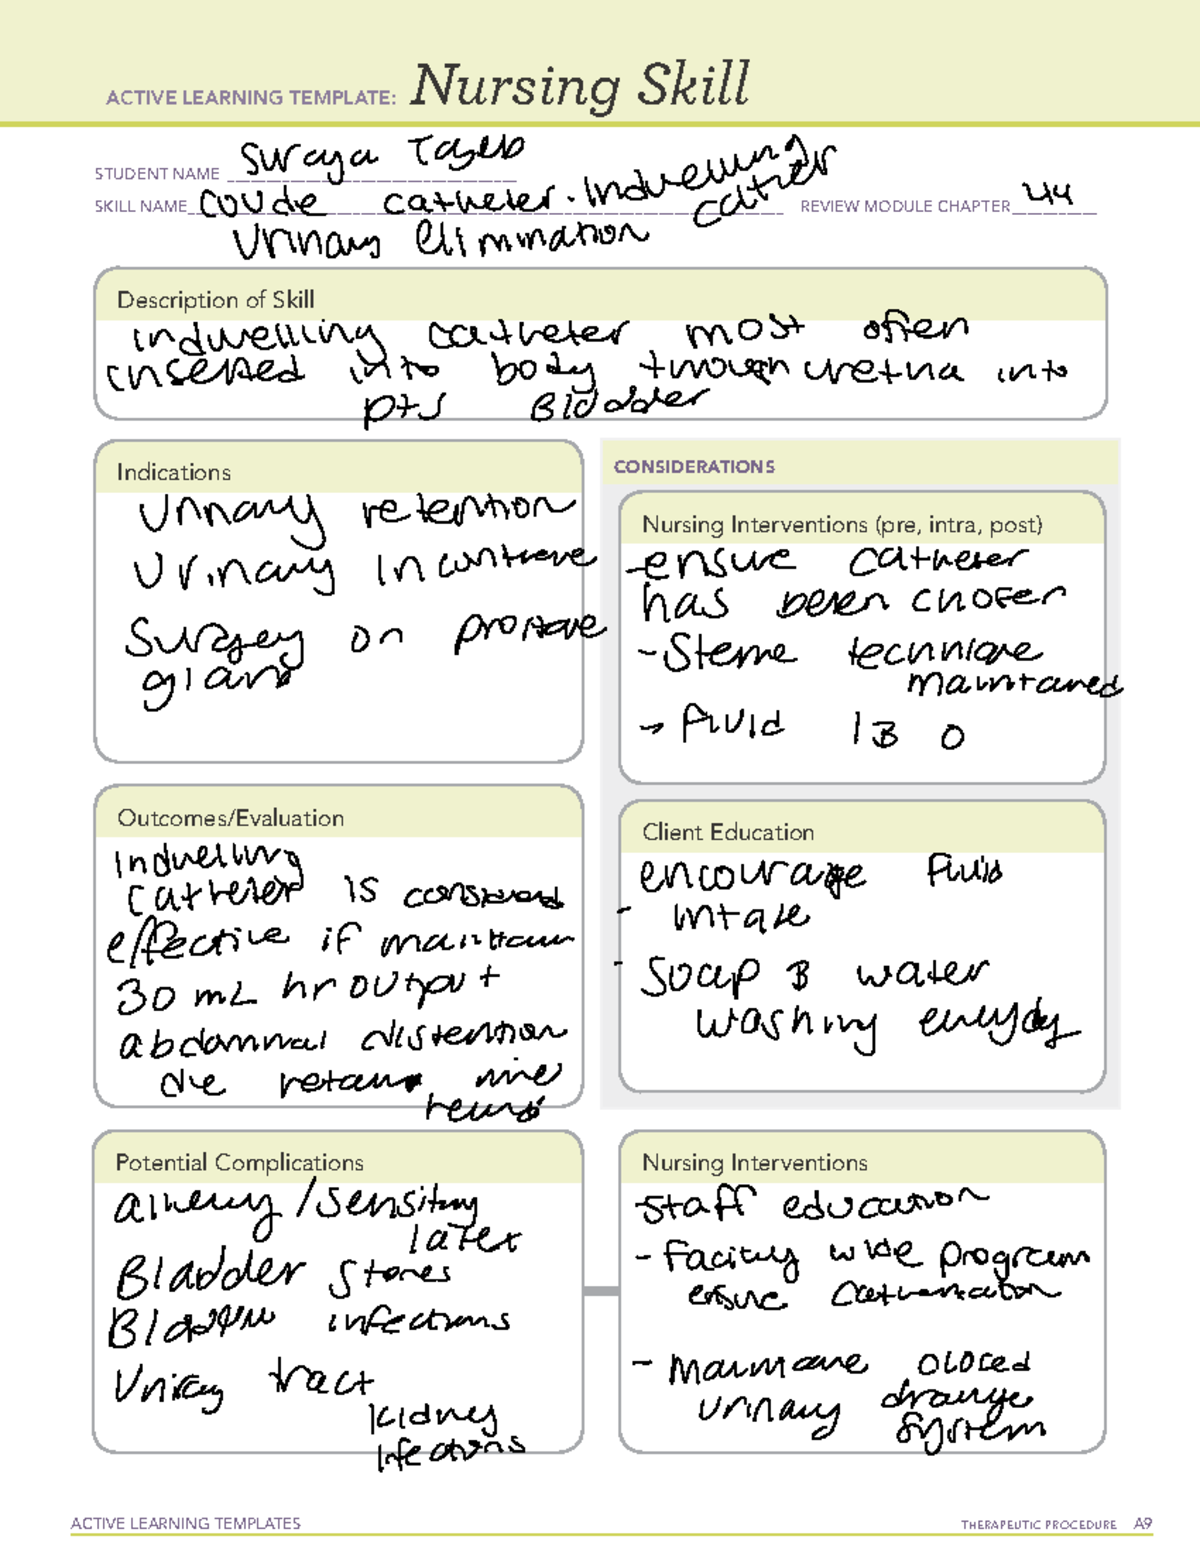 ACTIVE LEARNING TEMPLATE: Nursing Skill
STUDENT NAME Suraya
SKILL NAME coude catheter. Indwelling
REVIEW MODULE CHAPTER 44
Urinary Elimination
Description of Skill
indwelling catheter most often
inserted into body through uretha into
pts Bladder
Indications
Urinary retention
Urinary
Surgey on
gland
CONSIDERATIONS
Nursing Interventions (pre, intra, post)
-ensure catheter
has been chosen
- Sterile technique
maintained
- fluid I & O
Outcomes/Evaluation
Indwelling
catheter is considered
effective if maintain
30 mL hr output
abdominal distention
retain
Client Education
encourage fluid
- intake
- Soap & water
washing everyday
Potential Complications
/sensitivy
latex
Bladder stones
Bladder infections
Uninay tract
kidney
infections
Nursing Interventions
-staff education
- Facility wide program
ensure
- closed
urinary
system
ACTIVE LEARNING TEMPLATES
THERAPEUTIC PROCEDURE A9